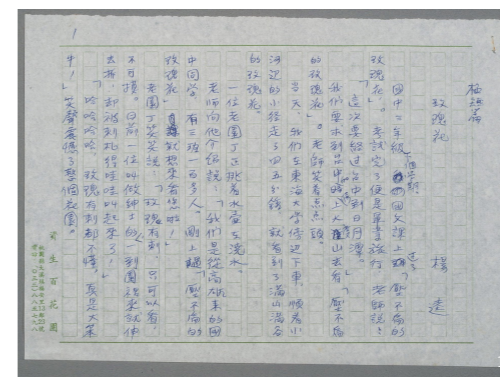 玫瑰花
楊逵
國中二年級下個學期國文課上過了「壓不扁的
玫瑰花」。考試完了便是畢業旅行,老師說:
這次要經過台中到日月潭。
我們要不到台中時上大肚山去看「壓不扁
的玫瑰花」。老師笑着点点頭。
當天,我們在東海大學傍邊下車,順着小
河邊的小徑走了四五分鐘,就看到了滿山滿谷
的玫瑰花。
一位老園丁正挑着水壺在澆水。
老師向他介紹說:「我們是從高雄來的國
中同學,有三班一百多人。剛上過「壓不扁的
玫瑰花」就想來看您啦!」
老園丁笑笑說:「玫瑰有刺,只可以看,
不可摸。日前一位叫做紳士的人到園裡來就伸
去摸,却被刺扎得哇哇叫起來了。」
「哈哈哈哈,玫瑰有刺都不懂,真是大笨
牛!」笑聲震憾了整個花園。
1
資生百花園